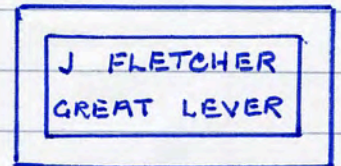 J FLETCHER
GREAT LEVER